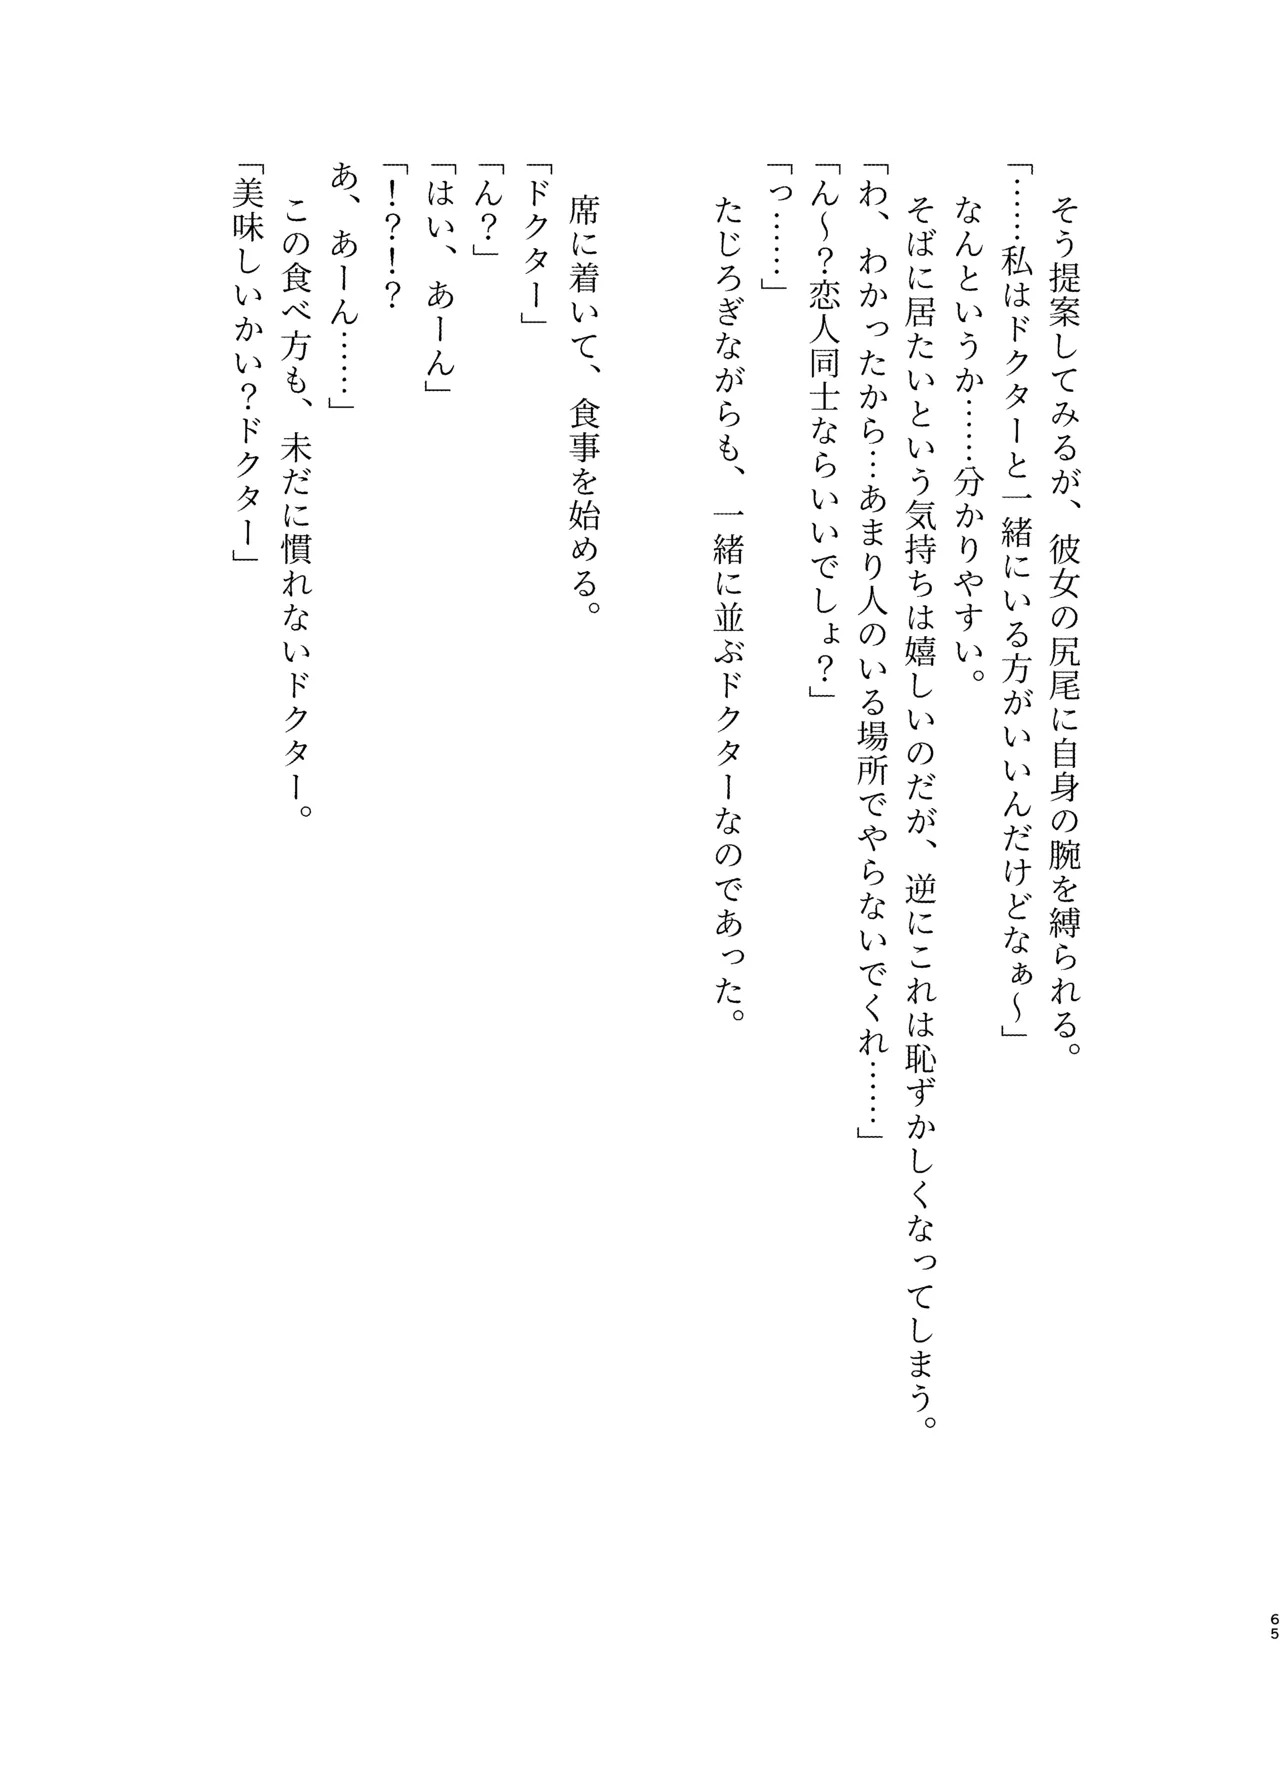 そう提案してみるが、彼女の尻尾に自身の腕を縛られる。
「……私はドクターと一緒にいる方がいいんだけどなぁ～」
なんというか……分かりやすい。
そばに居たいという気持ちは嬉しいのだが、逆にこれは恥ずかしくなってしまう。
「わ、わかったから…あまり人のいる場所でやらないでくれ……」
「ん～？恋人同士ならいいでしょ？」
「っ……」
たじろぎながらも、一緒に並ぶドクターなのであった。
席に着いて、食事を始める。
「ドクター」
「ん？」
「はい、あーん」
「！？！？
あ、あーん……」
この食べ方も、未だに慣れないドクター。
「美味しいかい？ドクター」
65